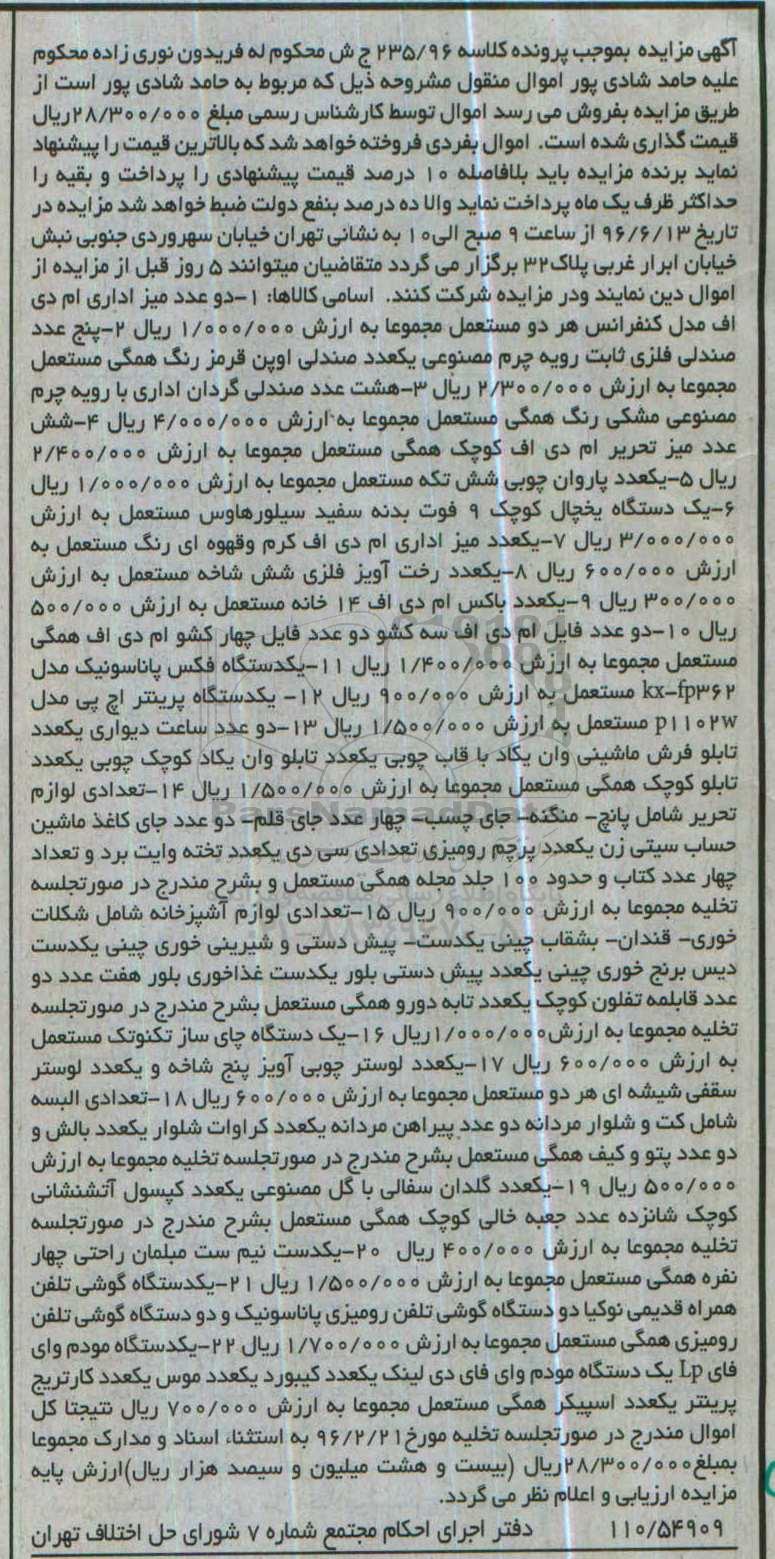 آگهی مزایده بموجب پرونده کلاسه ۲۳۵/۹۶ ج ش محکوم له فریدون نوری زاده محکوم
علیه حامد شادی پور اموال منقول مشروحه ذیل که مربوط به حامد شادی پور است از
طریق مزایده بفروش می رسد اموال توسط کارشناس رسمی مبلغ ۲۸/۳۰۰/۰۰۰ریال
قیمت گذاری شده است. اموال بفردی فروخته خواهد شد که بالاترین قیمت را پیشنهاد
نماید برنده مزایده باید بلافاصله ۱۰ درصد قیمت پیشنهادی را پرداخت و بقیه را
حداکثر ظرف یک ماه پرداخت نماید والا ده درصد بنفع دولت ضبط خواهد شد مزایده در
تاریخ ۹۶/۶/۱۳ از ساعت ۹ صبح الی۱۰ به نشانی تهران خیابان سهروردی جنوبی نبش
خیابان ابرار غربی پلاک۳۲ برگزار می گردد متقاضیان میتوانند ۵ روز قبل از مزایده از
اموال دین نمایند ودر مزایده شرکت کنند. اسامی کالاها: ۱-دو عدد میز اداری ام دی
اف مدل کنفرانس هر دو مستعمل مجموعا به ارزش ۱/۰۰۰/۰۰۰ ریال ۲-پنج عدد
صندلی فلزی ثابت رویه چرم مصنوعی یکعدد صندلی اوپن قرمز رنگ همگی مستعمل
مجموعا به ارزش ۲/۳۰۰/۰۰۰ ریال ۳-هشت عدد صندلی گردان اداری با رویه چرم
مصنوعی مشکی رنگ همگی مستعمل مجموعا به ارزش ۴/۰۰۰/۰۰۰ ریال ۴-شش
عدد میز تحریر ام دی اف کوچک همگی مستعمل مجموعا به ارزش ۲/۴۰۰/۰۰۰
ریال ۵-یکعدد پاروان چوبی شش تکه مستعمل مجموعا به ارزش ۱/۰۰۰/۰۰۰ ریال
۶-یک دستگاه یخچال کوچک ۹ فوت بدنه سفید سیلورهاوس مستعمل به ارزش
۳/۰۰۰/۰۰۰ ریال ۷-یکعدد میز اداری ام دی اف کرم وقهوه ای رنگ مستعمل به
ارزش ۶۰۰/۰۰۰ ریال ۸-یکعدد رخت آویز فلزی شش شاخه مستعمل به ارزش
۳۰۰/۰۰۰ ریال ۹-یکعدد باکس ام دی اف ۱۴ خانه مستعمل به ارزش ۵۰۰/۰۰۰
ریال ۱۰-دو عدد فایل ام دی اف سه کشو دو عدد فایل چهار کشو ام دی اف همگی
مستعمل مجموعا به ارزش ۱/۴۰۰/۰۰۰ ریال ۱۱-یکدستگاه فکس پاناسونیک مدل
kx-fp۳۶۲ مستعمل به ارزش ۹۰۰/۰۰۰ ریال ۱۲- یکدستگاه پرینتر اچ پی مدل
p۱۱۰۲w مستعمل به ارزش ۱/۵۰۰/۰۰۰ ریال ۱۳-دو عدد ساعت دیواری یکعدد
تابلو فرش ماشینی وان یکاد با قاب چوبی یکعدد تابلو وان یکاد کوچک چوبی یکعدد
تابلو کوچک همگی مستعمل مجموعا به ارزش ۱/۵۰۰/۰۰۰ ریال ۱۴-تعدادی لوازم
تحریر شامل پانچ- منگنه- جای چسب- چهار عدد جای قلم- دو عدد جای کاغذ ماشین
حساب سیتی زن یکعدد پرچم رومیزی تعدادی سی دی یکعدد تخته وایت برد و تعداد
چهار عدد کتاب و حدود ۱۰۰ جلد مجله همگی مستعمل و بشرح مندرج در صورتجلسه
تخلیه مجموعا به ارزش ۹۰۰/۰۰۰ ریال ۱۵-تعدادی لوازم آشپزخانه شامل شکلات
خوری- قندان- بشقاب چینی یکدست- پیش دستی و شیرینی خوری چینی یکدست
دیس برنج خوری چینی یکعدد پیش دستی بلور یکدست غذاخوری بلور هفت عدد دو
عدد قابلمه تفلون کوچک یکعدد تابه دورو همگی مستعمل بشرح مندرج در صورتجلسه
تخلیه مجموعا به ارزش۱/۰۰۰/۰۰۰ریال ۱۶-یک دستگاه چای ساز تکنوتک مستعمل
به ارزش ۶۰۰/۰۰۰ ریال ۱۷-یکعدد لوستر چوبی آویز پنج شاخه و یکعدد لوستر
سقفی شیشه ای هر دو مستعمل مجموعا به ارزش ۶۰۰/۰۰۰ ریال ۱۸-تعدادی البسه
شامل کت و شلوار مردانه دو عدد پیراهن مردانه یکعدد کراوات شلوار یکعدد بالش و
دو عدد پتو و کیف همگی مستعمل بشرح مندرج در صورتجلسه تخلیه مجموعا به ارزش
۵۰۰/۰۰۰ ریال ۱۹-یکعدد گلدان سفالی با گل مصنوعی یکعدد کپسول آتشنشانی
کوچک شانزده عدد جعبه خالی کوچک همگی مستعمل بشرح مندرج در صورتجلسه
تخلیه مجموعا به ارزش ۴۰۰/۰۰۰ ریال ۲۰-یکدست نیم ست مبلمان راحتی چهار
نفره همگی مستعمل مجموعا به ارزش ۱/۵۰۰/۰۰۰ ریال ۲۱-یکدستگاه گوشی تلفن
همراه قدیمی نوکیا دو دستگاه گوشی تلفن رومیزی پاناسونیک و دو دستگاه گوشی تلفن
رومیزی همگی مستعمل مجموعا به ارزش ۱/۷۰۰/۰۰۰ ریال ۲۲-یکدستگاه مودم وای
فای Lp یک دستگاه مودم وای فای دی لینک یکعدد کیبورد یکعدد موس یکعدد کارتریج
پرینتر یکعدد اسپیکر همگی مستعمل مجموعا به ارزش ۷۰۰/۰۰۰ ریال نتیجتا کل
اموال مندرج در صورتجلسه تخلیه مورخ۹۶/۲/۲۱ به استثناء اسناد و مدارک مجموعا
بمبلغ۲۸/۳۰۰/۰۰۰ریال (بیست و هشت میلیون و سیصد هزار ریال)ارزش پایه
مزایده ارزیابی و اعلام نظر می گردد.
۱۱۰/۵۴۹۰۹ دفتر اجرای احکام مجتمع شماره ۷ شورای حل اختلاف تهران